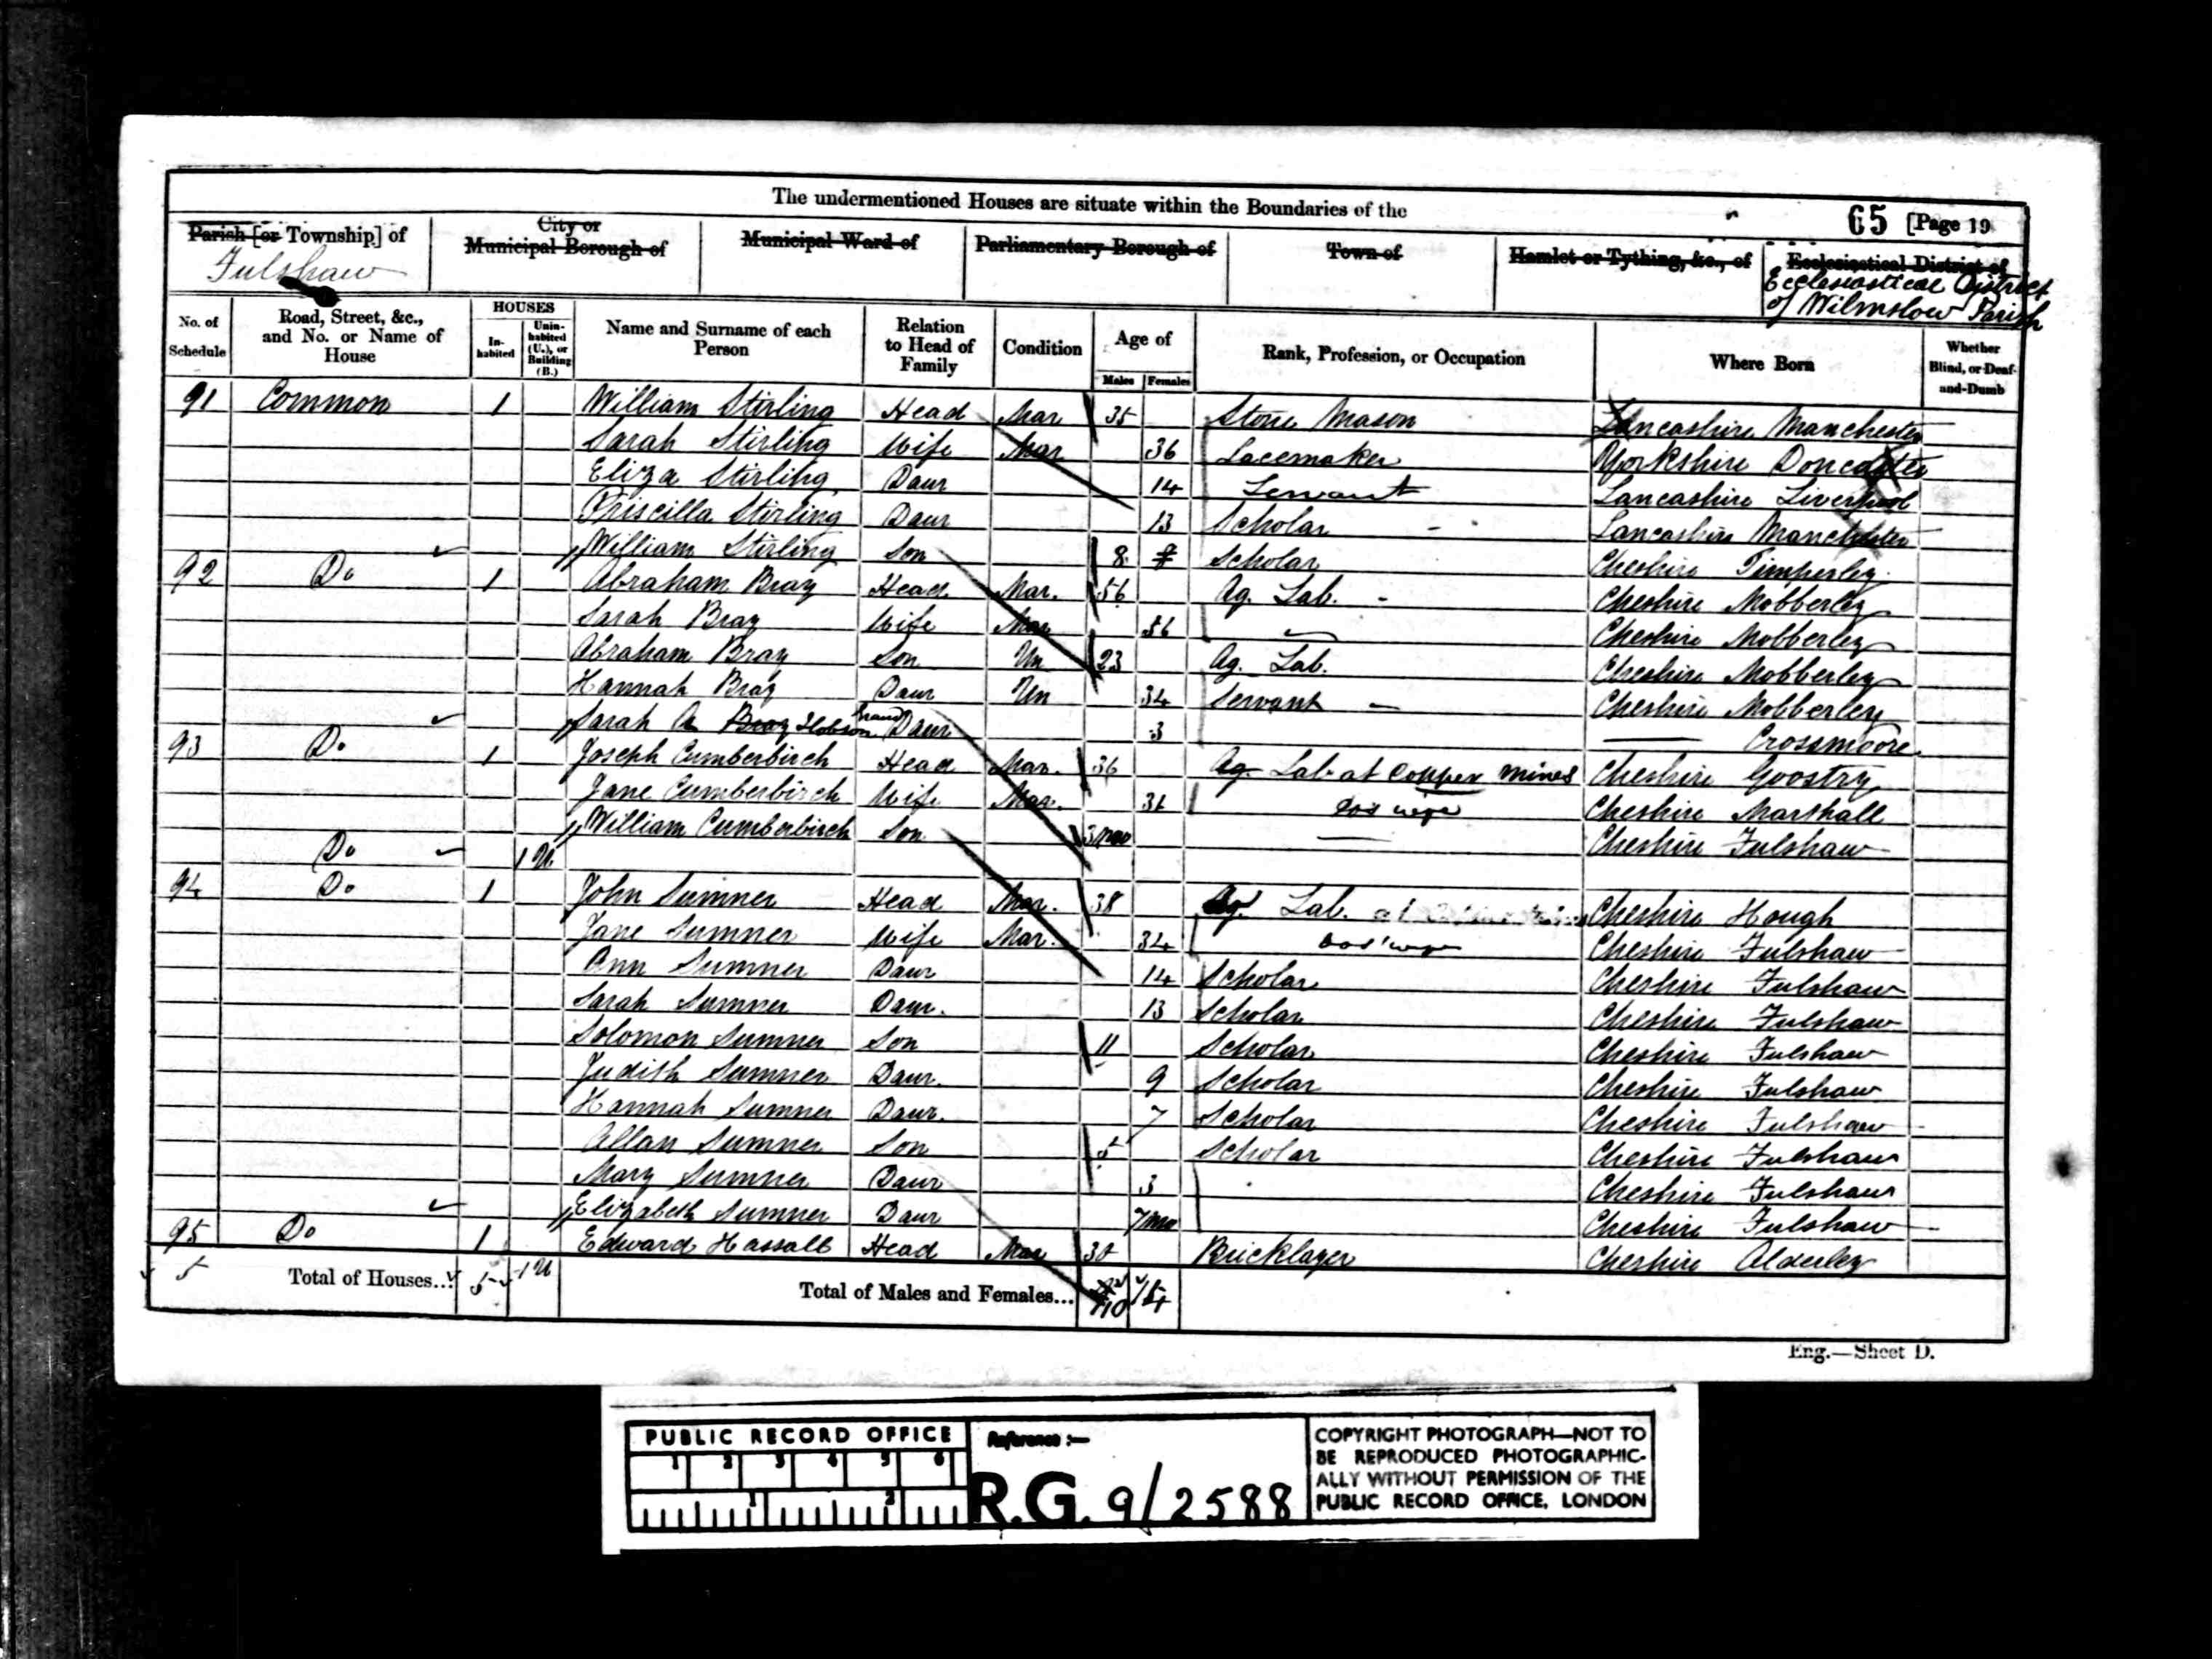 The undermentioned Houses are situate within the Boundaries of the
65 [Page 19
Parish [or Township] of Fulshaw
City or Municipal Borough of
Municipal Ward of
Parliamentary Borough of
Town of
Hamlet or Tything, &c., of
Ecclesiastical District of
Ecclesiastical District
of Wilmslow Parish
No. of Schedule
Road, Street, &c., and No. or Name of House
HOUSES
In-habited
Unin-habited (U.), or Building (B.)
Name and Surname of each Person
Relation to Head of Family
Condition
Age of
Males Females
Rank, Profession, or Occupation
Where Born
Whether Blind, or Deaf-and-Dumb
91 Common 1 William Stirling Head Mar 35 Stone Mason Lancashire Manchester
Sarah Stirling Wife Mar 36 Lacemaker Yorkshire Doncaster
Eliza Stirling Daur 14 Servant Lancashire Liverpool
Priscilla Stirling Daur 13 Scholar Lancashire Manchester
William Stirling Son 8 Scholar Cheshire Timperley
92 Do 1 Abraham Bray Head Mar. 56 Ag. Lab. Cheshire Mobberley
Sarah Bray Wife Mar 56 Cheshire Mobberley
Abraham Bray Son Un 23 Ag. Lab. Cheshire Mobberley
Hannah Bray Daur Un 34 Servant Cheshire Mobberley
Sarah A Bray Hobson Grand Daur 3 Crossmoore
93 Do 1 Joseph Cumberbirch Head Mar. 36 Ag. Lab at Copper mines Cheshire Goostry
Jane Cumberbirch Wife Mar. Cheshire Marthall
William Cumberbirch Son 3 mo Cheshire Fulshaw
Do 1 U
94 Do 1 John Sumner Head Mar. 38 Ag. Lab. at Cheshire Hough
Jane Sumner Wife Mar. 34 Cheshire Fulshaw
Ann Sumner Daur 14 Scholar Cheshire Fulshaw
Sarah Sumner Daur. 13 Scholar Cheshire Fulshaw
Solomon Sumner Son 11 Scholar Cheshire Fulshaw
Judith Sumner Daur. 9 Scholar Cheshire Fulshaw
Hannah Sumner Daur. 7 Scholar Cheshire Fulshaw
Allan Sumner Son 5 Scholar Cheshire Fulshaw
Mary Sumner Daur 3 Cheshire Fulshaw
Elizabeth Sumner Daur 7 mo Cheshire Fulshaw
95 Do 1 Edward Hassall Head Mar Bricklayer Cheshire Alderley
5 Total of Houses... 5 1 U Total of Males and Females... 10
Eng.—Sheet D.
PUBLIC RECORD OFFICE
1 2 3 4 5 6
1 2
Reference :—
R.G. 9/2588
COPYRIGHT PHOTOGRAPH—NOT TO
BE REPRODUCED PHOTOGRAPHIC-
ALLY WITHOUT PERMISSION OF THE
PUBLIC RECORD OFFICE, LONDON